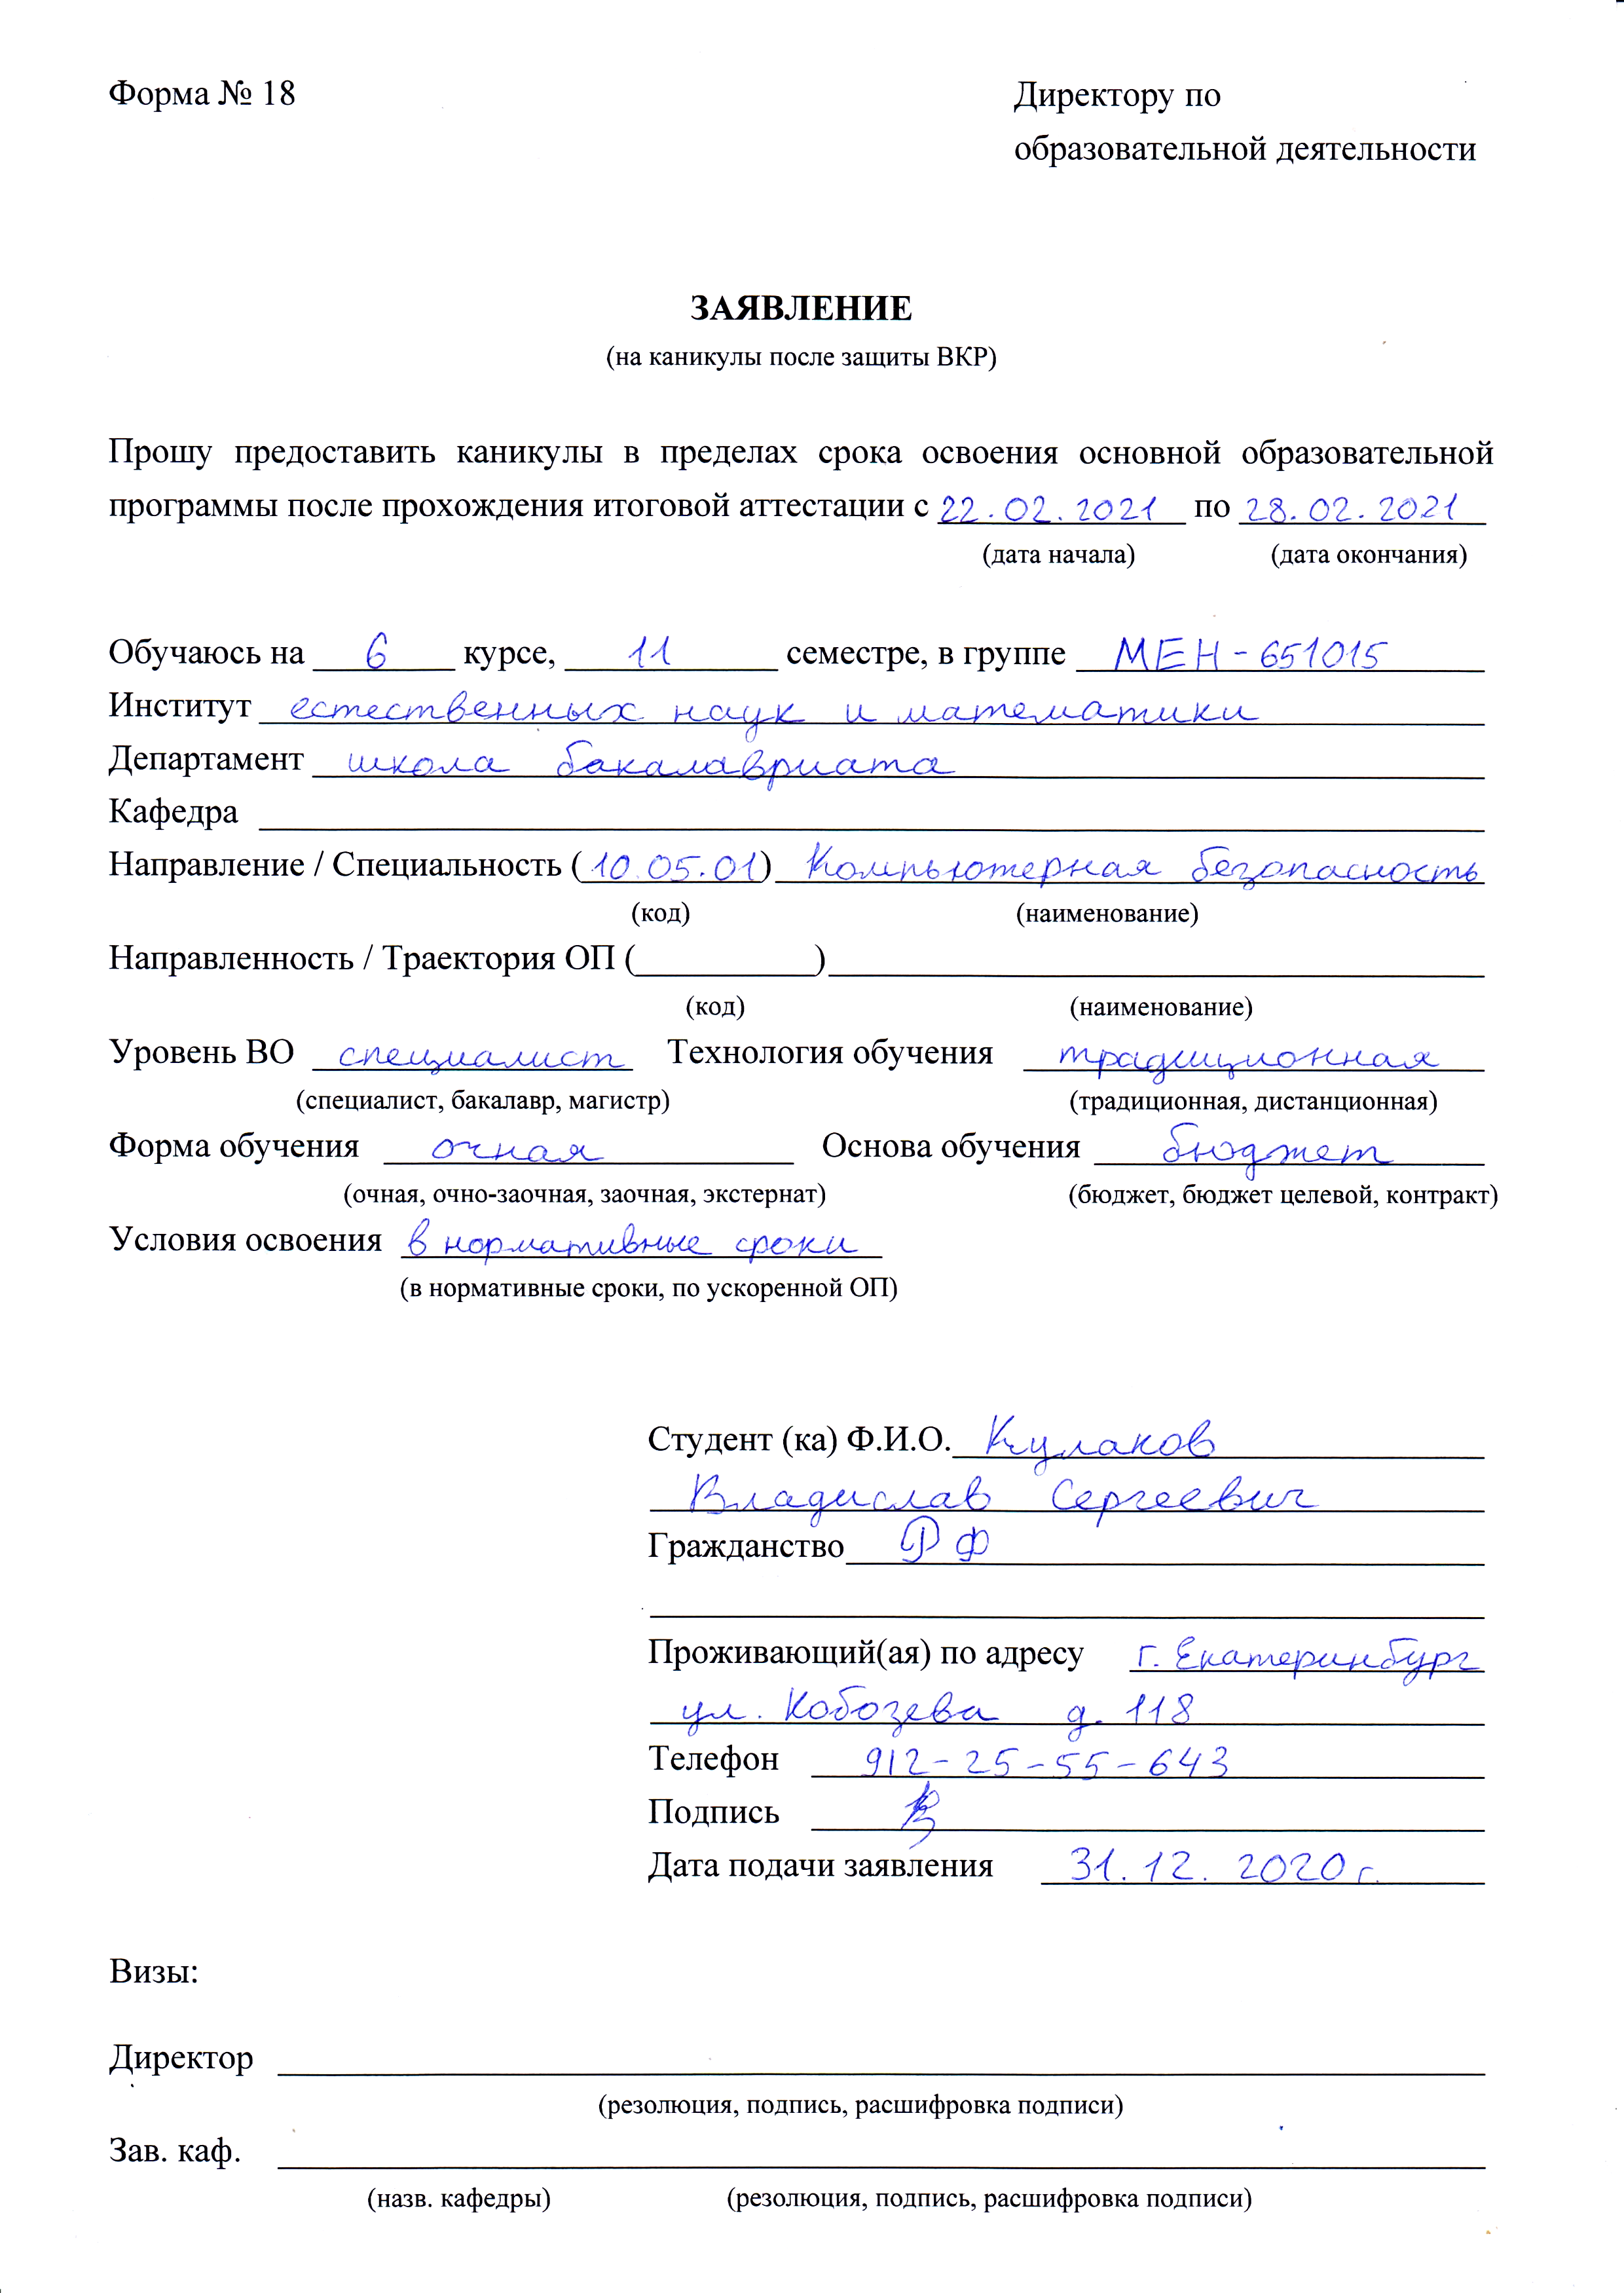 Форма № 18
Директору по
образовательной деятельности
ЗАЯВЛЕНИЕ
(на каникулы после защиты ВКР)
Прошу предоставить каникулы в пределах срока освоения основной образовательной
программы после прохождения итоговой аттестации с 22.02.2021 по 28.02.2021
(дата начала) (дата окончания)
Обучаюсь на 6 курсе, 11 семестре, в группе МЕН-651015
Институт естественных наук и математики
Департамент школа бакалавриата
Кафедра
Направление / Специальность (10.05.01) Компьютерная безопасность
(код) (наименование)
Направленность / Траектория ОП ( )
(код) (наименование)
Уровень ВО специалист Технология обучения традиционная
(специалист, бакалавр, магистр) (традиционная, дистанционная)
Форма обучения очная Основа обучения бюджет
(очная, очно-заочная, заочная, экстернат) (бюджет, бюджет целевой, контракт)
Условия освоения в нормативные сроки
(в нормативные сроки, по ускоренной ОП)
Студент (ка) Ф.И.О. Кулаков
Владислав Сергеевич
Гражданство РФ
Проживающий(ая) по адресу г. Екатеринбург
ул. Кобозева д. 118
Телефон 912-25-55-643
Подпись
Дата подачи заявления 31.12.2020 г.
Визы:
Директор
(резолюция, подпись, расшифровка подписи)
Зав. каф.
(назв. кафедры) (резолюция, подпись, расшифровка подписи)